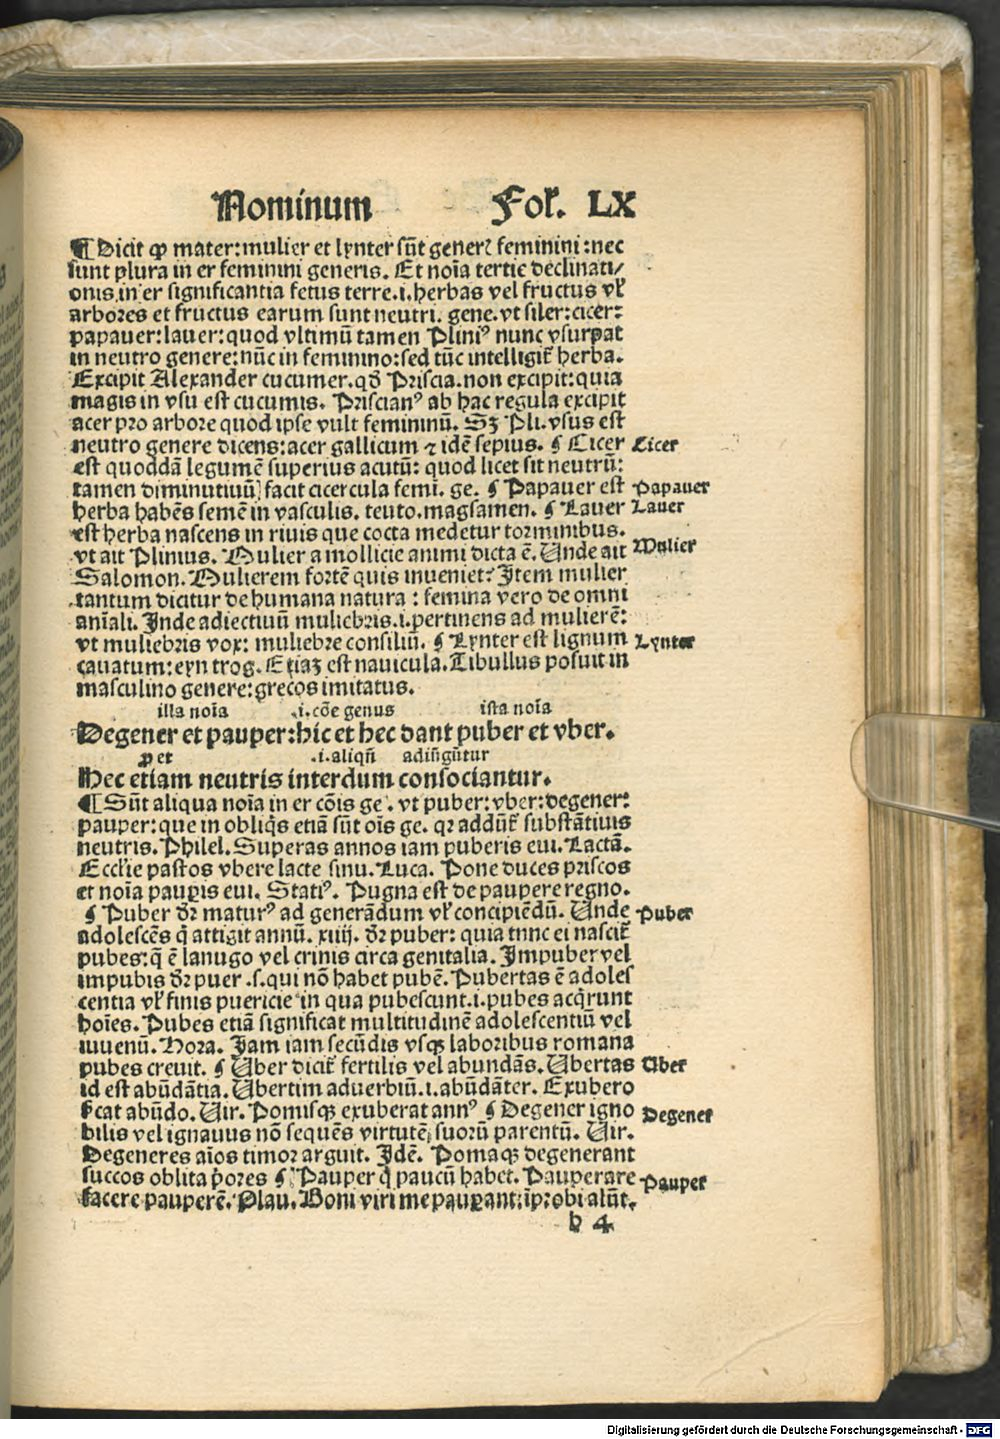 Nominum Fol. LX
¶ Dicit ꝙ mater: mulier et lynter sūt generꝭ feminini: nec
sunt plura in er feminini generis. Et noīa tertie declinati/
onis in er significantia fetus terre .i. herbas vel fructus vꝉ
arbores et fructus earum sunt neutri. gene. vt siler: cicer:
papauer: lauer: quod vltimū tamen Pliniꝰ nunc vsurpat
in neutro genere: nūc in feminino: sed tūc intelligit᷑ herba.
Excipit Alexander cucumer. qđ Priscia. non excipit: quia
magis in vsu est cucumis. Priscianꝰ ab hac regula excipit
acer pro arbore quod ipse vult femininū. Sꝫ Pli. vsus est
neutro genere dicens: acer gallicum ⁊ idē sepius. ¶ Cicer Cicer
est quoddā legumē superius acutū: quod licet sit neutrū:
tamen diminutiuū facit cicercula femi. ge. ¶ Papauer est Papauer
herba habēs semē in vasculis. teuto. magsamen. ¶ Lauer Lauer
est herba nascens in riuis que cocta medetur torminibus.
vt ait Plinius. Mulier a mollicie animi dicta ē. Unde ait Mulier
Salomon. Mulierem fortē quis inueniet? Item mulier
tantum dicitur de humana natura: femina vero de omni
aniālí. Inde adiectiuū muliebris .i. pertinens ad mulierē:
vt muliebris vox: muliebre consiliū. ¶ Lynter est lignum Lynter
cauatum: eyn trog. Etiaꝫ est nauicula. Tibullus posuit in
masculino genere: grecos imitatus.
illa noīa .i. cōe genus ista noīa
Degener et pauper: hic et hec dant puber et vber.
ꝓ et .i. aliqn̄ adiūgūtur
Hec etiam neutris interdum consociantur.
¶ Sūt aliqua noīa in er cōis ge. vt puber: vber: degener:
pauper: que in obliqs etiā sūt oīs ge. qꝛ addūt᷑ substātiuis
neutris. Philel. Superas annos iam puberis eui. Lactā.
Ecclie pastos vbere lacte sinu. Luca. Pone duces priscos
et noīa paupis eui. Statiꝰ. Pugna est de paupere regno.
¶ Puber dꝛ maturꝰ ad generādum vꝉ concipiēdū. Unde Puber
adolescēs q attigit annū. xiiij. dꝛ puber: quia tnnc ei nascit᷑
pubes: q ē lanugo vel crinis circa genitalia. Impuber vel
impubis dꝛ puer .s. qui nō habet pubē. Pubertas ē adoles
centia vꝉ finis puericie in qua pubescunt .i. pubes acqrunt
hoīes. Pubes etiā significat multitudinē adolescentiū vel
iuuenū. Hora. Iam iam secūdis vsqꝫ laboribus romana
pubes creuit. ¶ Uber dicit᷑ fertilis vel abundās. Ubertas Uber
id est abūdātia. Ubertim aduerbiū .i. abūdāter. Exubero
s̄cat abūdo. Uir. Pomisqꝫ exuberat annꝰ ¶ Degener igno Degener
bilis vel ignauus nō sequēs virtutē suorū parentū. Uir.
Degeneres aīos timor arguit. Idē. Pomaqꝫ degenerant
succos oblita pores ¶ Pauper q paucū habet. Pauperare Pauper
facere pauperē. Plau. Boni viri me paupant: īprobi alūt.
h 4
Digitalisierung gefördert durch die Deutsche Forschungsgemeinschaft - DFG